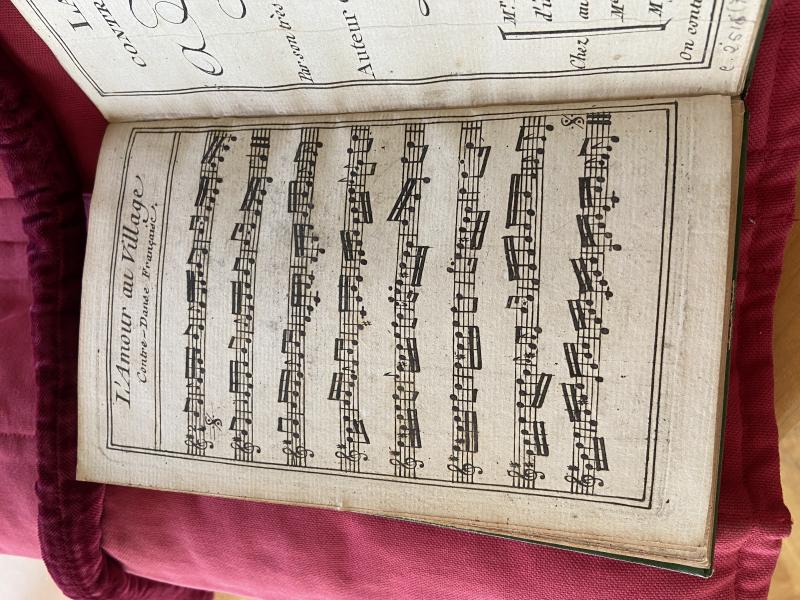 L'Amour au Village
Contre-Danse Française.
CONTR
Par son très
Auteur
M.r
d'u
Chez au
On contr